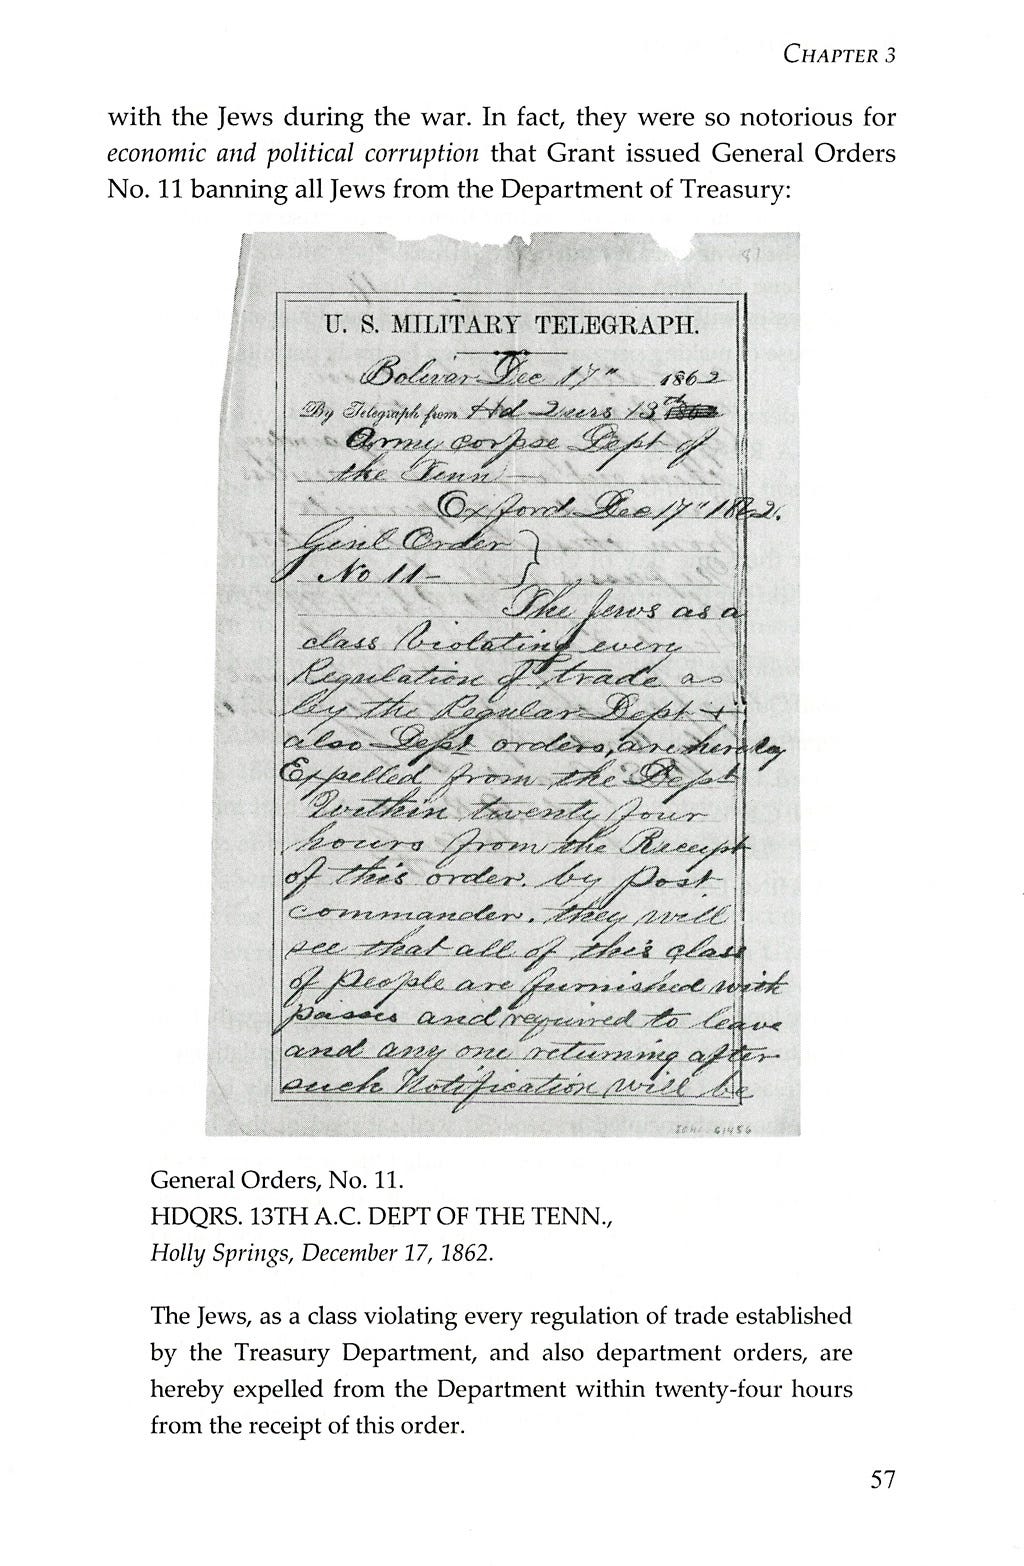 CHAPTER 3
with the Jews during the war. In fact, they were so notorious for
economic and political corruption that Grant issued General Orders
No. 11 banning all Jews from the Department of Treasury:
81
U. S. MILITARY TELEGRAPH.
Bolivar Dec 17" 1862
By Telegraph from Hd Quers 13th
Army corpse Dept of
the Tenn
Oxford Dec 17" 1862.
Genl Order
No 11-
The Jews as a
class Violating every
Regulation of trade as
by the Regular Dept +
also Dept orders, are hereby
Expelled from the Dept
Within twenty four
hours from the Receipt
of this order. by post
commander. they will
see that all of this class
of people are furnished with
passes and required to leave
and any one returning after
such Notification will be
General Orders, No. 11.
HDQRS. 13TH A.C. DEPT OF THE TENN.,
Holly Springs, December 17, 1862.
The Jews, as a class violating every regulation of trade established
by the Treasury Department, and also department orders, are
hereby expelled from the Department within twenty-four hours
from the receipt of this order.
57